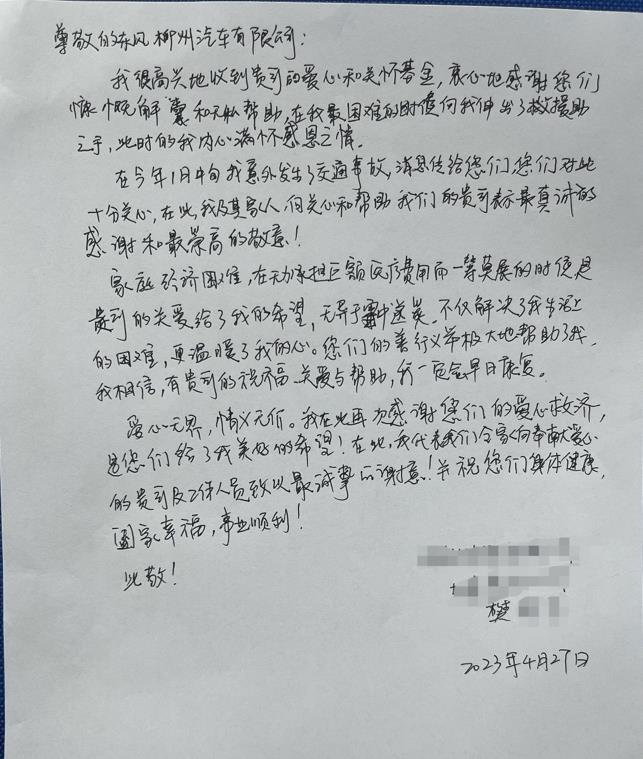 尊敬的东风柳州汽车有限公司:
我很高兴地收到贵司的爱心和关怀基金,衷心地感谢您们
慷慨解囊和无私帮助,在我最困难的时候向我伸出了救援助
之手,此时的我内心满怀感恩之情.
在今年1月中旬我意外发生了交通事故,消息传给您们,您们对此
十分关心,在此,我及其家人,向关心和帮助我们的贵司表示最真诚的
感谢和最崇高的敬意!
家庭经济困难,在无力承担巨额医疗费用而一筹莫展的时候是
贵司的关爱给了我的希望,无异于雪中送炭.不仅解决了我生活上
的困难,更温暖了我的心。您们的善行义举极大地帮助了我.
我相信,有贵司的祝福、关爱与帮助,我一定会早日康复。
爱心无界,情义无价。我在此再次感谢您们的爱心救济,
是您们给了我美好的希望!在此,我代表我们全家向奉献爱心
的贵司及工作人员致以最诚挚的谢意!并祝您们身体健康,
阖家幸福,事业顺利!
此敬!
樊
2023年4月27日